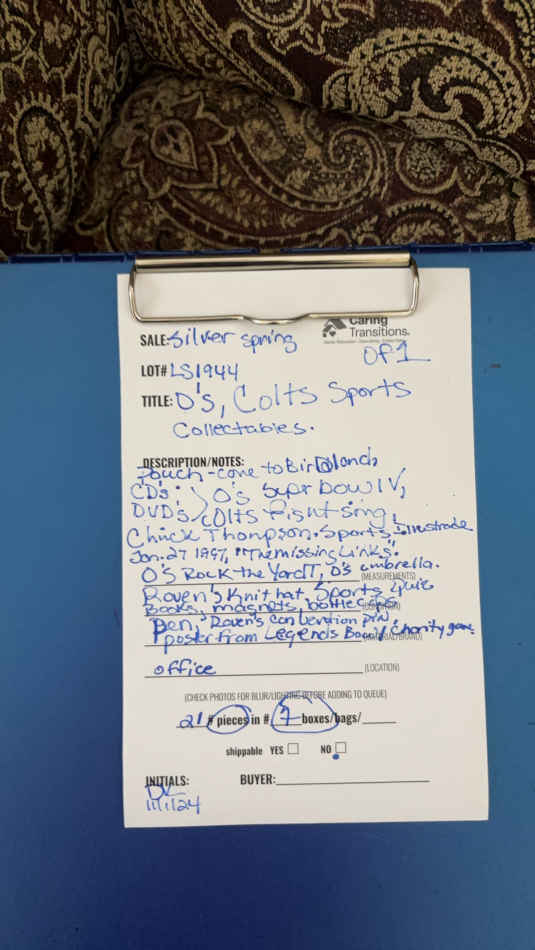 Caring
Transitions.
SALE: Silver Spring
OF 1
LOT# LS1944
TITLE: O's, Colts Sports
Collectables.
DESCRIPTION/NOTES:
Pouch - come to Birdland,
CD's: O's Supr bowl V,
DVD's Colts fight song,
Chuck Thompson. Sports
Jan. 27 1997, "The missing Links".
O's Rock the Yard T, O's umbrella.
(MEASUREMENTS)
Raven's Knit hat, Sports
Books, magnets, bottlecaps
Pen, Raven's convention pin,
(MATERIAL/BRAND)
poster from Legends Bowl charity game
office (LOCATION)
(CHECK PHOTOS FOR BLUR/LIGHTING BEFORE ADDING TO QUEUE)
21 # pieces in # 7 boxes/bags/
shippable YES NO
INITIALS: BUYER:
11/1/24